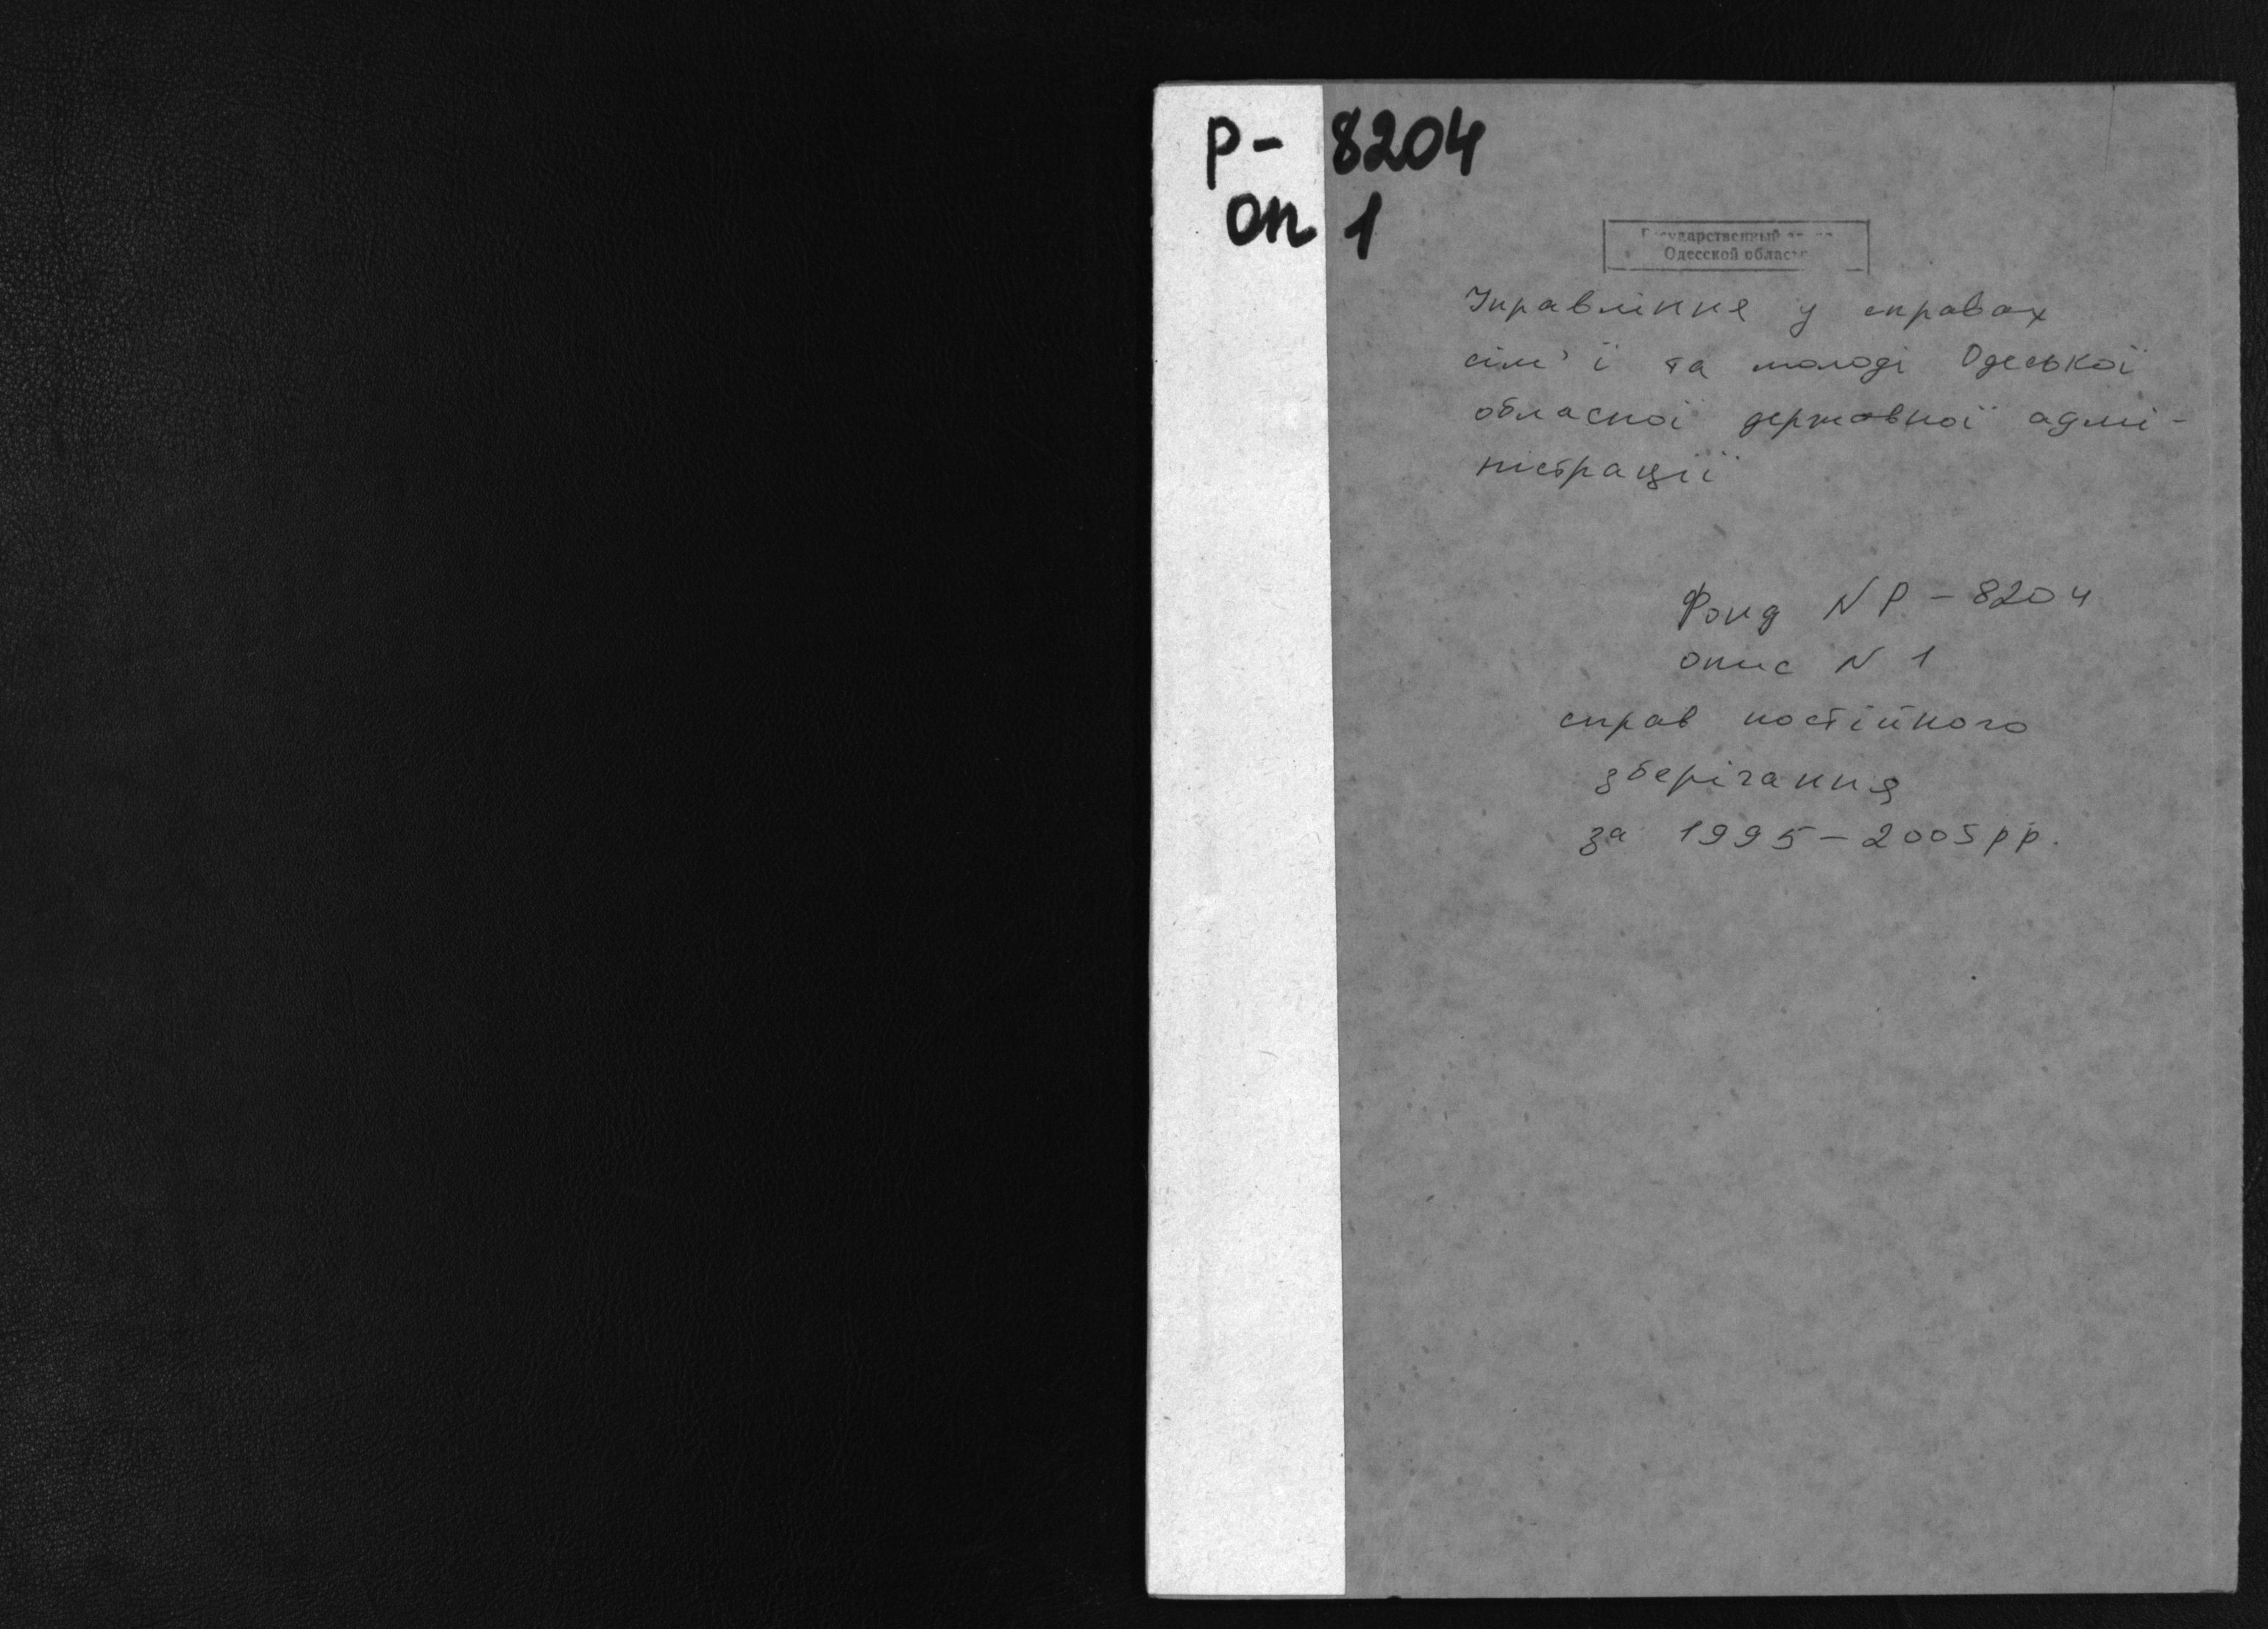 Р-8204
оп 1
Государственный
Одесской области
Управління у справах
сім'ї та молоді Одеської
обласної державної адмі-
ністрації
Фонд N Р-8204
опис N 1
справ постійного
зберігання
за 1995-2005рр.